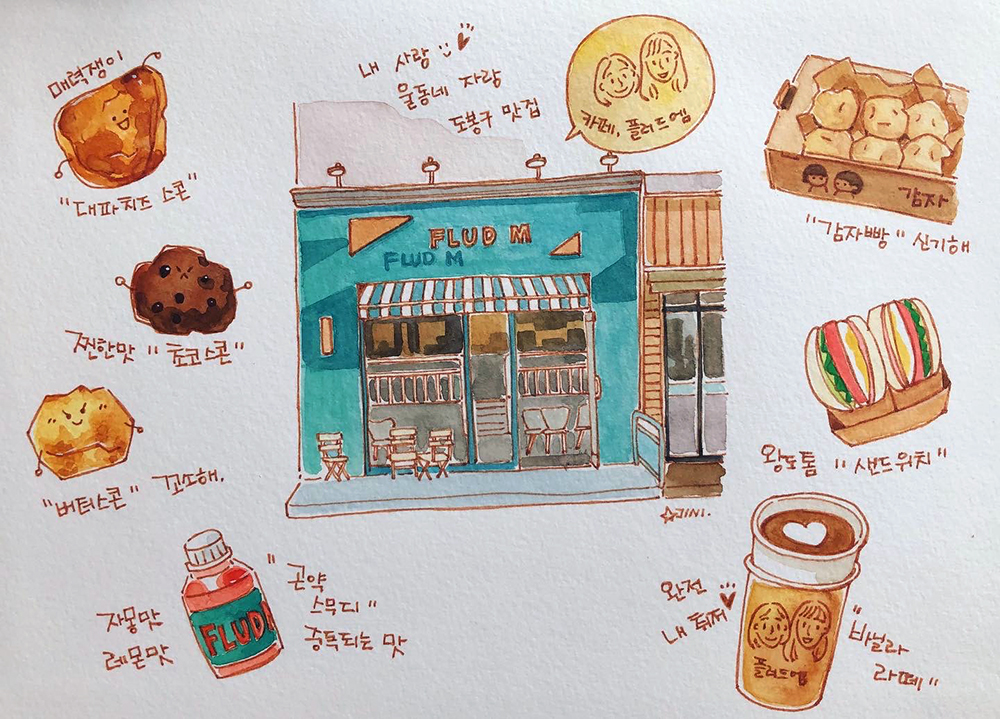 내 사랑
울동네 자랑
도봉구 맛집
카페, 플러드엠
매력쟁이
"대파치즈 스콘"
감자
"감자빵" 신기해
FLUD M
FLUD M
찐한맛 "쵸코스콘"
왕도톰 "샌드위치"
"버터스콘" 꼬소해.
☆JINI.
자몽맛
레몬맛
FLUD
"곤약
스무디"
중독되는 맛
완전
내 취저
플러드엠
"바닐라
라떼"